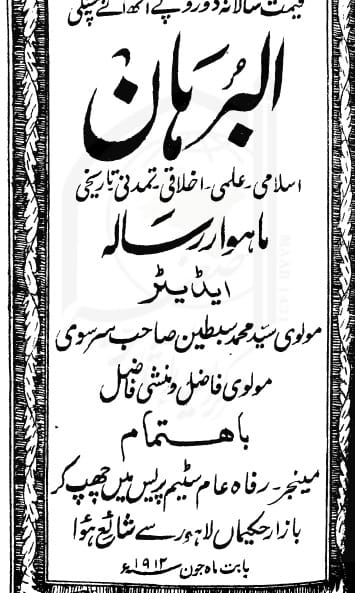 قیمت سالانہ دو روپے آٹھ آنے پیشگی
البُرہان
اسلامی۔ علمی۔ اخلاقی۔ تمدنی تاریخی
ماہوار رسالہ
ایڈیٹر
مولوی سیّد محمد سبطین صاحب سرسوی
مولوی فاضل و منشی فاضل
باہتمام
مینجر۔ رفاہ عام سٹیم پریس میں چھپ کر
بازار حکیماں لاہور سے شائع ہوا
بابت ماہ جون ۱۹۱۲ء